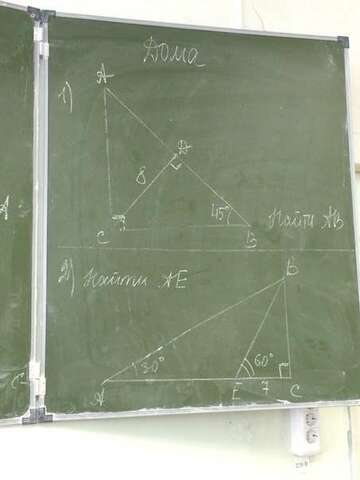 Дома
1)
A
D
8
45°
C
B
Найти AB
2) Найти AE
B
30°
60°
A
E
7
C